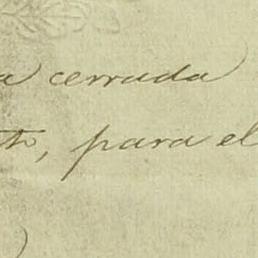 a cerrada
to, para el